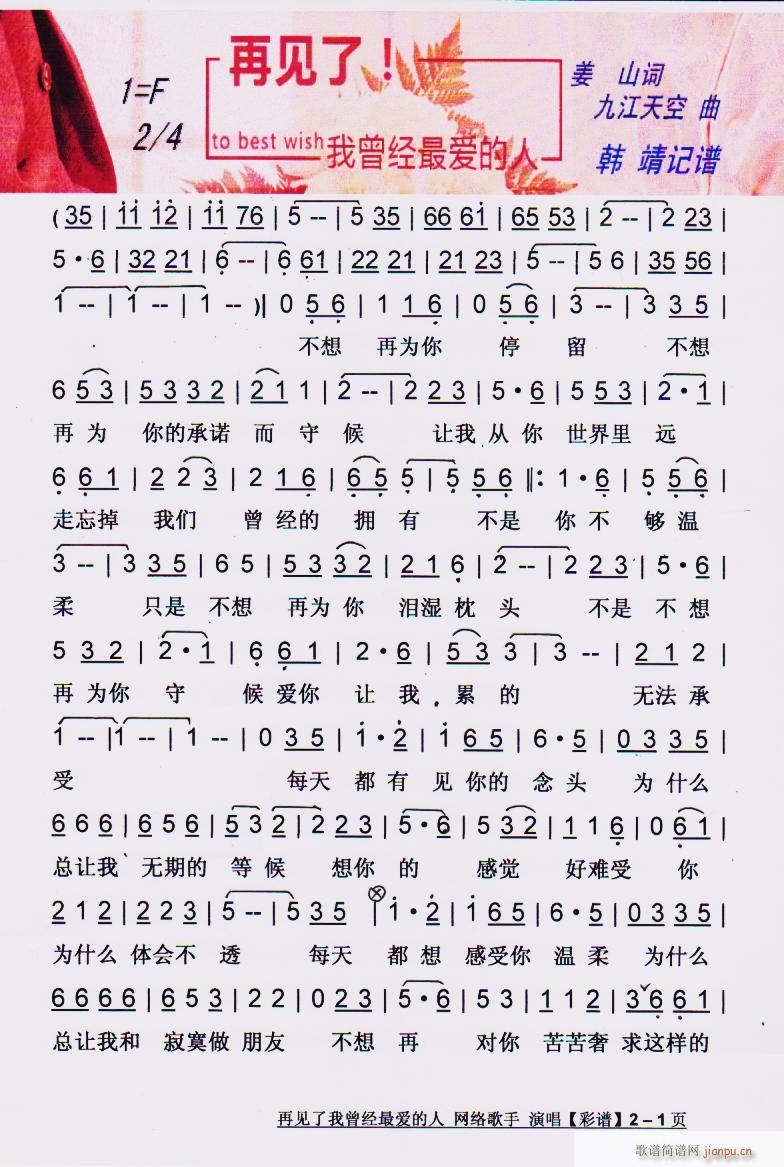 再见了！
1=F
2/4
to best wish 我曾经最爱的人
姜 山词
九江天空 曲
韩 靖记谱
( 35 | 11 12 | 11 76 | 5 -- | 5 35 | 66 61 | 65 53 | 2 -- | 2 23 |
5·6 | 32 21 | 6 -- | 6 61 | 22 21 | 21 23 | 5 -- | 5 6 | 35 56 |
1 -- | 1 -- | 1 -- )| 0 56 | 1 16 | 0 56 | 3 -- | 3 35 |
不想 再为你 停 留 不想
6 53 | 53 32 | 21 1 | 2 -- | 2 23 | 5·6 | 5 53 | 2·1 |
再 为 你的承诺 而 守 候 让我 从 你 世界里 远
6 61 | 2 23 | 2 16 | 65 5 | 5 56 ‖: 1·6 | 5 56 |
走忘掉 我们 曾 经的 拥 有 不是 你 不 够温
3 -- | 3 35 | 6 5 | 53 32 | 21 6 | 2 -- | 2 23 | 5·6 |
柔 只是 不想 再为 你 泪湿 枕 头 不是 不 想
5 32 | 2·1 | 6 61 | 2·6 | 53 3 | 3 -- | 21 2 |
再 为你 守 候 爱你 让 我 累 的 无法 承
1 -- | 1 -- | 1 -- | 0 35 | 1·2 | 1 65 | 6·5 | 03 35 |
受 每天 都 有 见 你的 念 头 为 什么
66 6 | 65 6 | 53 2 | 2 23 | 5·6 | 5 32 | 11 6 | 0 61 |
总让我 无期的 等 候 想你 的 感觉 好难受 你
21 2 | 22 3 | 5 -- | 5 35 | 1·2 | 1 65 | 6·5 | 03 35 |
为什么 体会不 透 每天 都 想 感受你 温 柔 为什么
66 66 | 65 3 | 2 2 | 0 23 | 5·6 | 5 3 | 11 2 | 36 61 |
总让我和 寂寞做 朋友 不想 再 对你 苦苦奢 求这样的
再见了我曾经最爱的人 网络歌手 演唱【彩谱】2－1页
歌谱简谱网 jianpu.cn